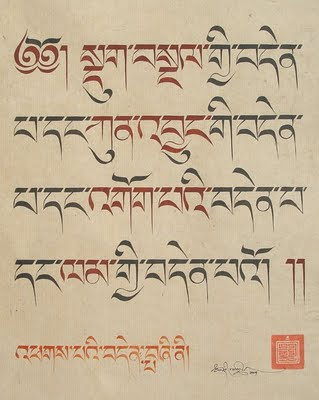 ༄༅། སྡུག་བསྔལ་གྱི་བདེན་
པ་དང་ཀུན་འབྱུང་གི་བདེན་
པ་དང་འགོག་པའི་བདེན་པ་
དང་ལམ་གྱི་བདེན་པའོ། །
འཕགས་པའི་བདེན་བཞི་ནི།